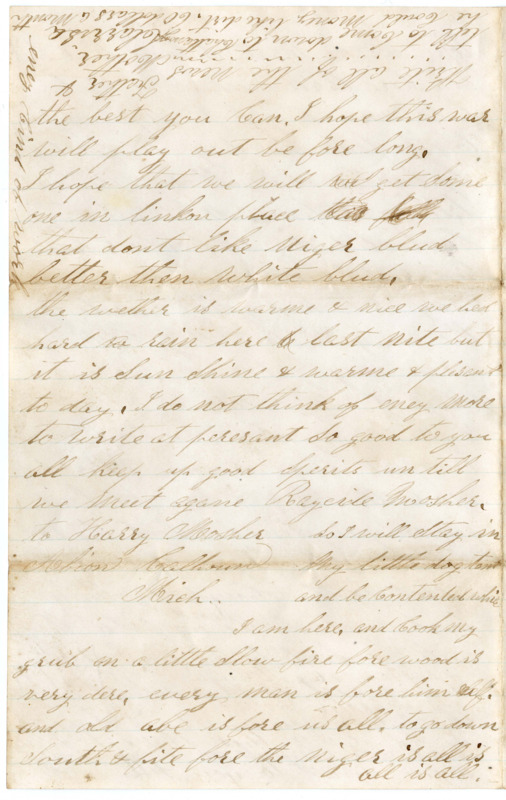 the best you Can. I hope this war
will play out be fore long.
I hope that we will get some
one in linkon place
that dont like niger blud
better then white blud.
the wether is warme & nice we hed
hard rain here last nite but
it is Sun Shine & warme & plesent
to day. I do not think of eney more
to write at peresant So good to you
all keep up good Sperits un till
we Meet agane Mosher.
to Harry Mosher So I will Stay in
Albion Calhoun My little dog tent
Mich. and be Contented while
I am here, and Cook my
grub on a little Slow fire fore wood is
very dere, every man is fore him self.
and old abe is fore us all, to go down
South & fite fore the niger is all is
all is all.
Write all of the News
Father & Mother
tell to Come down to
he Could Money like dirt. 60 dollars a Month
eney kind of work